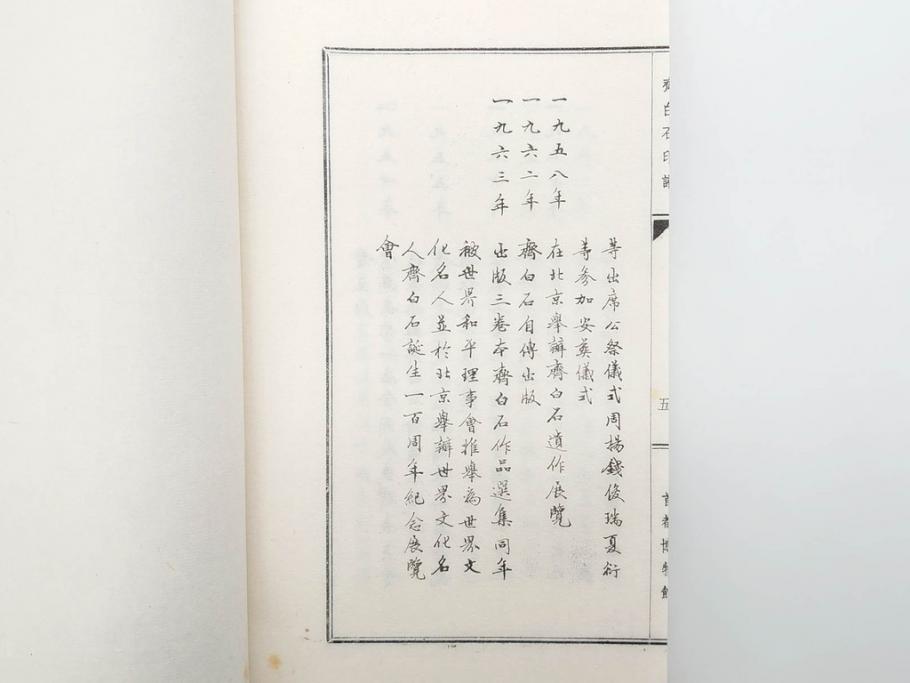 齊白石印譜
五
首都博物館
等出席公祭儀式周揚錢俊瑞夏衍
等參加安葬儀式
一九五八年 在北京舉辦齊白石遺作展覽
一九六二年 齊白石自傳出版
一九六三年 出版三卷本齊白石作品選集同年
被世界和平理事會推舉為世界文
化名人並於北京舉辦世界文化名
人齊白石誕生一百周年紀念展覽
會